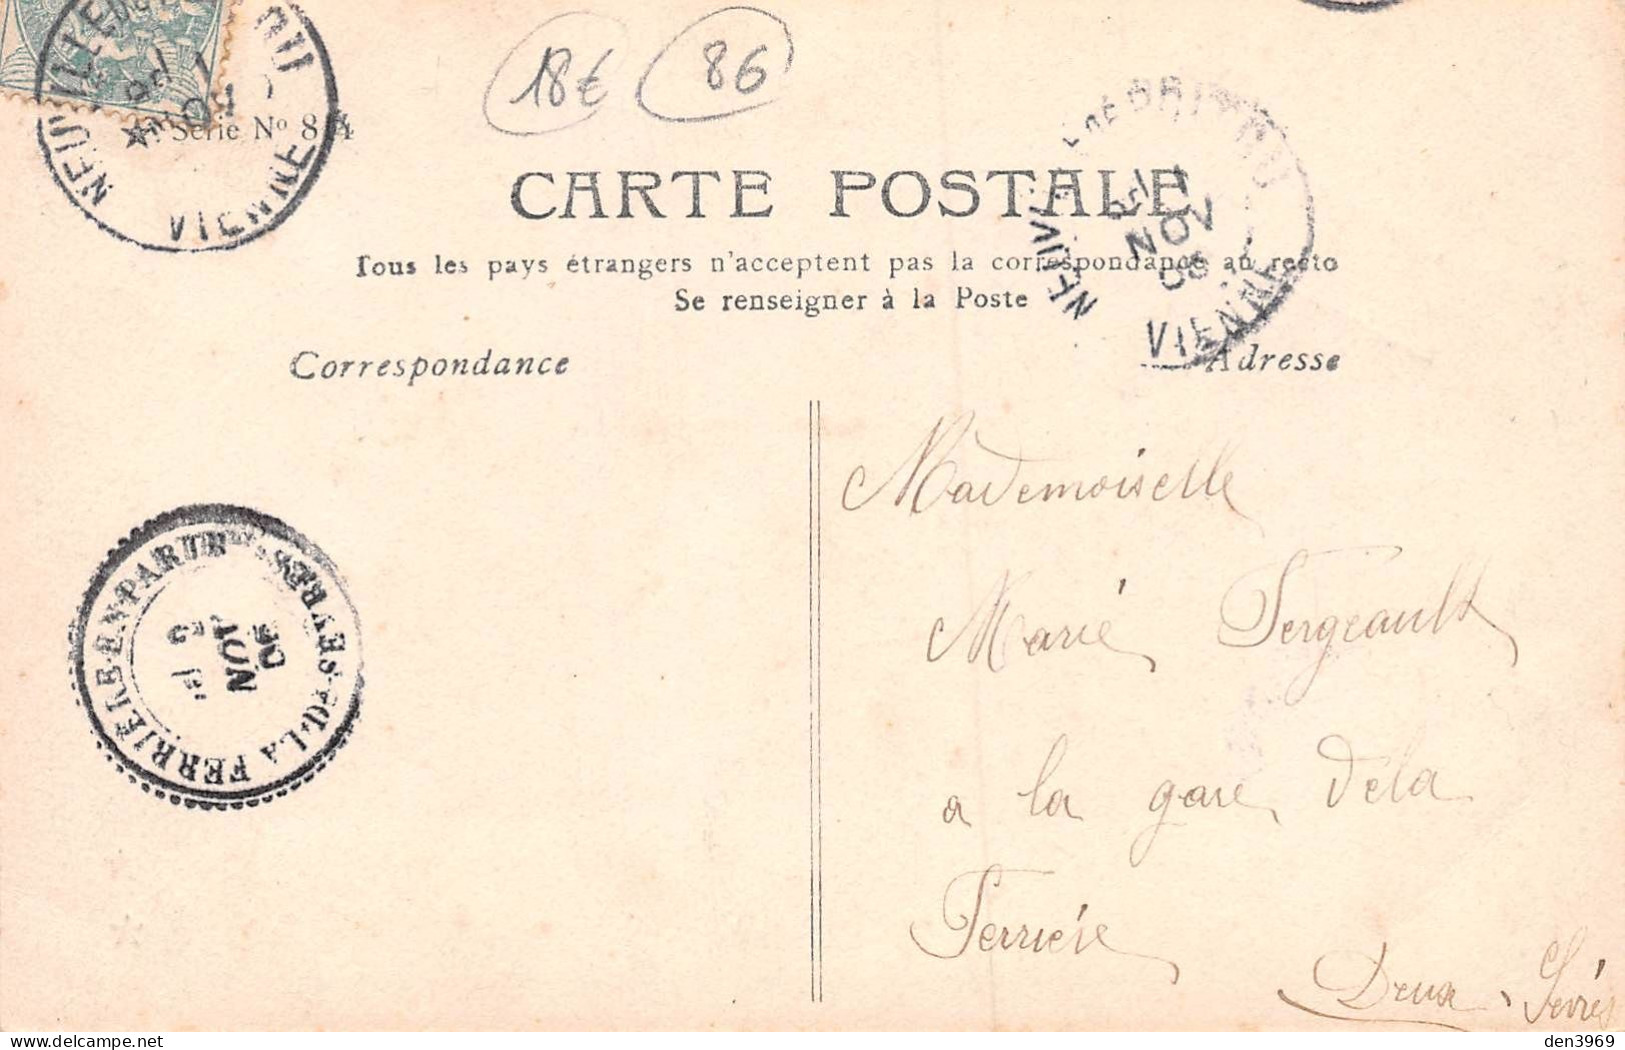 18€ 86
Série Nº 874
CARTE POSTALE
Tous les pays étrangers n'acceptent pas la correspondance au recto
Se renseigner à la Poste
Correspondance
Adresse
NEUVILLE
VIENNE
NOV
VIENNE
LA FERRIÈRE-EN-PARTHENAY
NOV
Mademoiselle
Marie Fergeault
a la gare déla
Ferrière
Deux, Sèvres
den3969